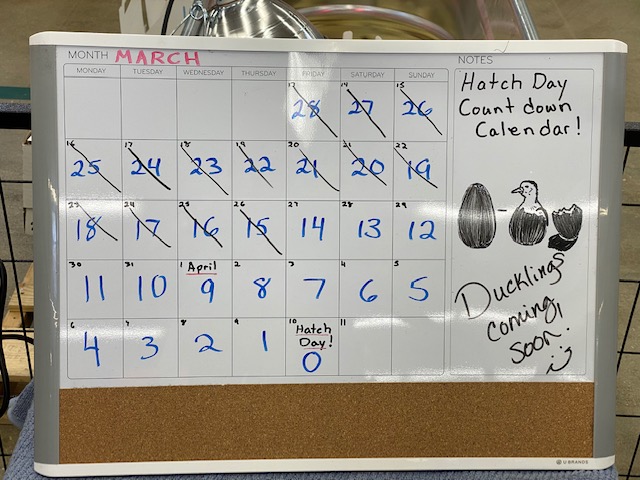 MONTH MARCH
NOTES
MONDAY TUESDAY WEDNESDAY THURSDAY FRIDAY SATURDAY SUNDAY
13 14 15
28 27 26
16 17 18 19 20 21 22
25 24 23 22 21 20 19
23 24 25 26 27 28 29
18 17 16 15 14 13 12
30 31 1 April 2 3 4 5
11 10 9 8 7 6 5
6 7 8 9 10 Hatch 11
Day!
4 3 2 1 0
Hatch Day
Count down
Calendar!
Ducklings
coming
soon!
U BRANDS